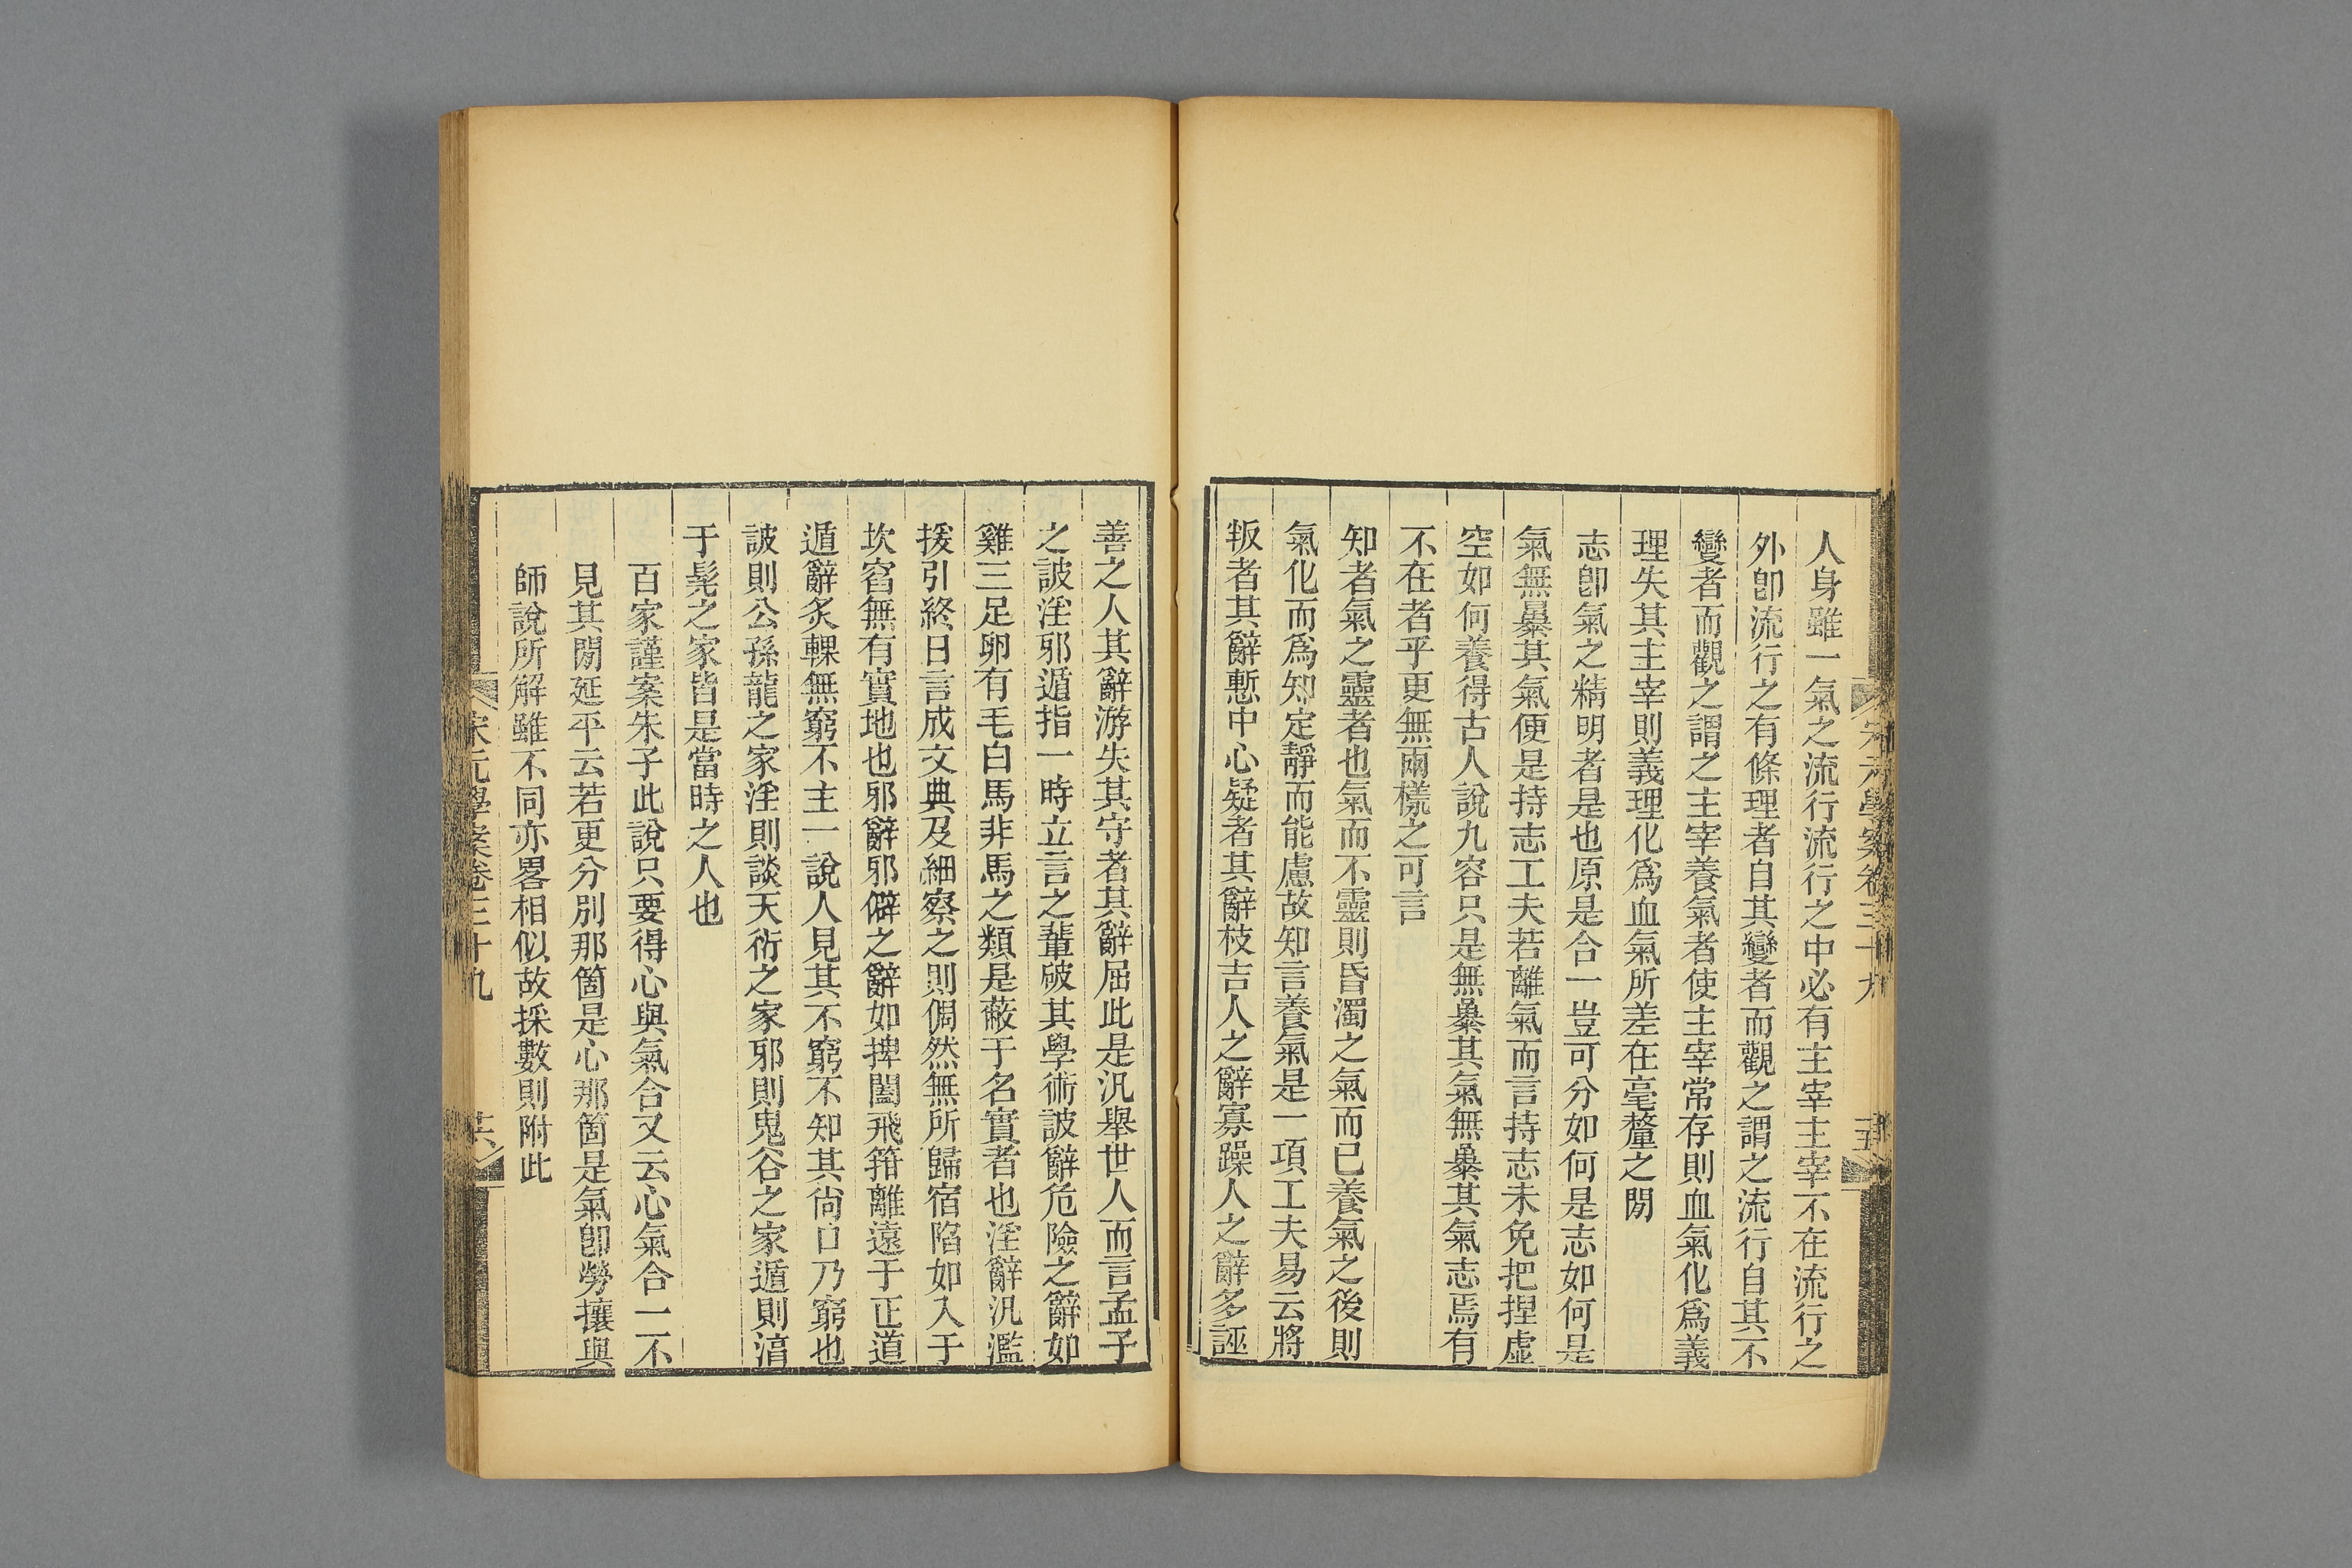 宋元學案卷三十九
十五
人身雖一氣之流行流行之中必有主宰主宰不在流行之
外卽流行之有條理者自其變者而觀之謂之流行自其不
變者而觀之謂之主宰養氣者使主宰常存則血氣化爲義
理失其主宰則義理化爲血氣所差在毫釐之閒
志卽氣之精明者是也原是合一豈可分如何是志如何是
氣無暴其氣便是持志工夫若離氣而言持志未免把捏虛
空如何養得古人說九容只是無暴其氣無暴其氣志焉有
不在者乎更無兩樣之可言
知者氣之靈者也氣而不靈則昏濁之氣而已養氣之後則
氣化而爲知定靜而能慮故知言養氣是一項工夫易云將
叛者其辭慙中心疑者其辭枝吉人之辭寡躁人之辭多誣
善之人其辭游失其守者其辭屈此是汎舉世人而言孟子
之詖淫邪遁指一時立言之輩破其學術詖辭危險之辭如
雞三足卵有毛白馬非馬之類是蔽于名實者也淫辭汎濫
援引終日言成文典及細察之則倜然無所歸宿陷如入于
坎窞無有實地也邪辭邪僻之辭如捭闔飛箝離遠于正道
遁辭炙輠無窮不主一說人見其不窮不知其尙口乃窮也
詖則公孫龍之家淫則談天衍之家邪則鬼谷之家遁則淳
于髡之家皆是當時之人也
百家謹案朱子此說只要得心與氣合又云心氣合一不
見其閒延平云若更分別那箇是心那箇是氣卽勞攘與
師說所解雖不同亦畧相似故採數則附此
宋元學案卷三十九
十六